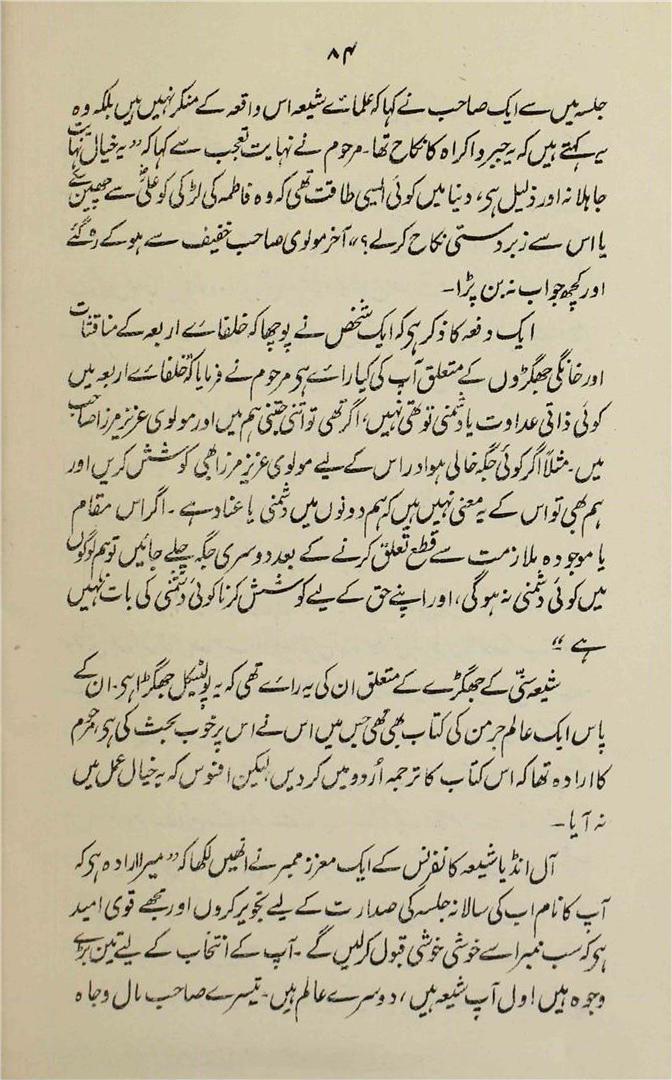 ۸۴
جلسہ میں سے ایک صاحب نے کہا کہ علماے شیعہ اس واقعہ کے منکر نہیں ہیں بلکہ وہ
یہ کہتے ہیں کہ یہ جبر و اکراہ کا نکاح تھا۔ مرحوم نے نہایت تعجب سے کہا کہ ”یہ خیال نہایت
جاہلانہ اور ذلیل ہی، دنیا میں کوئی ایسی طاقت تھی کہ وہ فاطمہ کی لڑکی کو علیؓ سے چھین سکے
یا اس سے زبردستی نکاح کرلے؟“ آخر مولوی صاحب خفیف سے ہو کے رہ گئے
اور کچھ جواب نہ بن پڑا۔
ایک دفعہ کا ذکر ہی کہ ایک شخص نے پوچھا کہ خلفاے اربعہ کے مناقشات
اور خانگی جھگڑوں کے متعلق آپ کی کیا راے ہی مرحوم نے فرمایا کہ ”خلفاے اربعہ میں
کوئی ذاتی عداوت یا دشمنی تو تھی نہیں، اگر تھی تو اتنی جتنی ہم میں اور مولوی عزیز مرزا صاحب
میں۔ مثلاً اگر کوئی جگہ خالی ہو اور اس کے لیے مولوی عزیز مرزا بھی کوشش کریں اور
ہم بھی تو اس کے یہ معنی نہیں ہیں کہ ہم دونوں میں دشمنی یا عناد ہے۔ اگر اس مقام
یا موجودہ ملازمت سے قطع تعلق کرنے کے بعد دوسری جگہ چلے جائیں تو ہم لوگوں
میں کوئی دشمنی نہ ہوگی، اور اپنے حق کے لیے کوشش کرنا کوئی دشمنی کی بات نہیں
ہے“
شیعہ سنّی کے جھگڑے کے متعلق ان کی یہ راے تھی کہ یہ پولٹیکل جھگڑا ہی۔ ان کے
پاس ایک عالم جرمن کی کتاب بھی تھی جس میں اس نے اس پر خوب بحث کی ہی، مرحوم
کا ارادہ تھا کہ اس کتاب کا ترجمہ اُردو میں کر دیں، لیکن افسوس کہ یہ خیال عمل میں
نہ آیا۔
آل انڈیا شیعہ کانفرنس کے ایک معزز ممبر نے انھیں لکھا کہ ”میرا ارادہ ہی کہ
آپ کا نام اب کی سالانہ جلسہ کی صدارت کے لیے تجویز کروں اور مجھے قوی امید
ہی کہ سب ممبر اسے خوشی خوشی قبول کرلیں گے۔ آپ کے انتخاب کے لیے تین بڑے
وجوہ ہیں اول آپ شیعہ ہیں، دوسرے عالم ہیں۔ تیسرے صاحب مال و جاہ